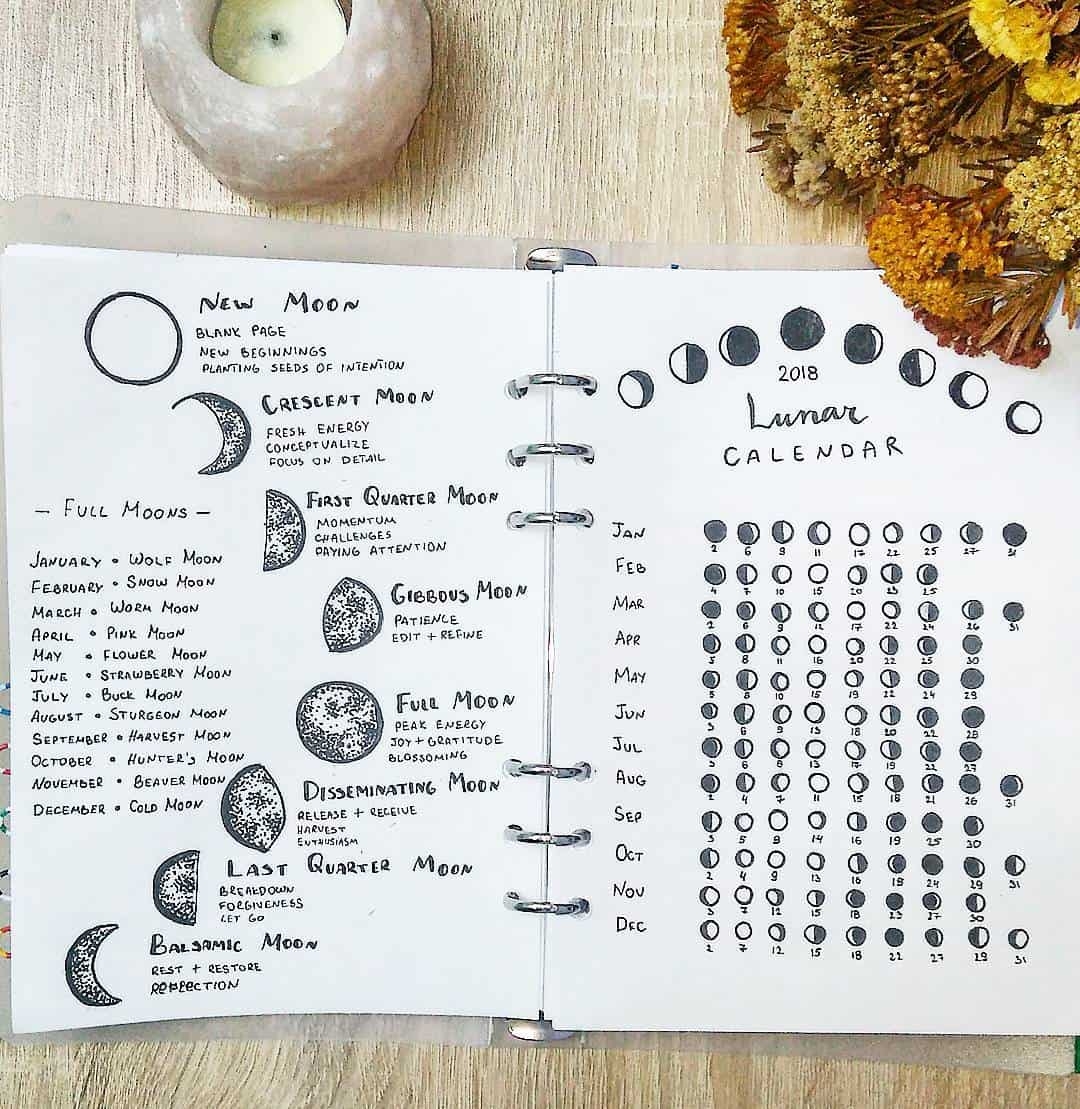 NEW MOON
BLANK PAGE
NEW BEGINNINGS
PLANTING SEEDS OF INTENTION
CRESCENT MOON
FRESH ENERGY
CONCEPTUALIZE
FOCUS ON DETAIL
FIRST QUARTER MOON
MOMENTUM
CHALLENGES
PAYING ATTENTION
GIBBOUS MOON
PATIENCE
EDIT + REFINE
FULL MOON
PEAK ENERGY
JOY + GRATITUDE
BLOSSOMING
DISSEMINATING MOON
RELEASE + RECEIVE
HARVEST
ENTHUSIASM
LAST QUARTER MOON
BREAKDOWN
FORGIVENESS
LET GO
BALSAMIC MOON
REST + RESTORE
REFLECTION
- FULL MOONS -
JANUARY • WOLF MOON
FEBRUARY • SNOW MOON
MARCH • WORM MOON
APRIL • PINK MOON
MAY • FLOWER MOON
JUNE • STRAWBERRY MOON
JULY • BUCK MOON
AUGUST • STURGEON MOON
SEPTEMBER • HARVEST MOON
OCTOBER • HUNTER'S MOON
NOVEMBER • BEAVER MOON
DECEMBER • COLD MOON
2018
Lunar
CALENDAR
JAN
2 6 9 11 17 22 25 27 31
FEB
4 7 10 15 20 23 25
MAR
2 6 9 12 17 22 24 26 31
APR
5 8 11 16 20 22 25 30
MAY
5 8 10 15 19 22 24 29
JUN
3 6 9 13 18 20 22 28
JUL
3 6 8 13 17 19 22 27
AUG
2 4 7 11 15 18 21 26 31
SEP
3 5 9 14 16 19 25 30
OCT
2 4 9 13 16 19 24 29 31
NOV
3 7 12 15 18 23 27 30
DEC
2 7 12 15 18 22 27 29 31